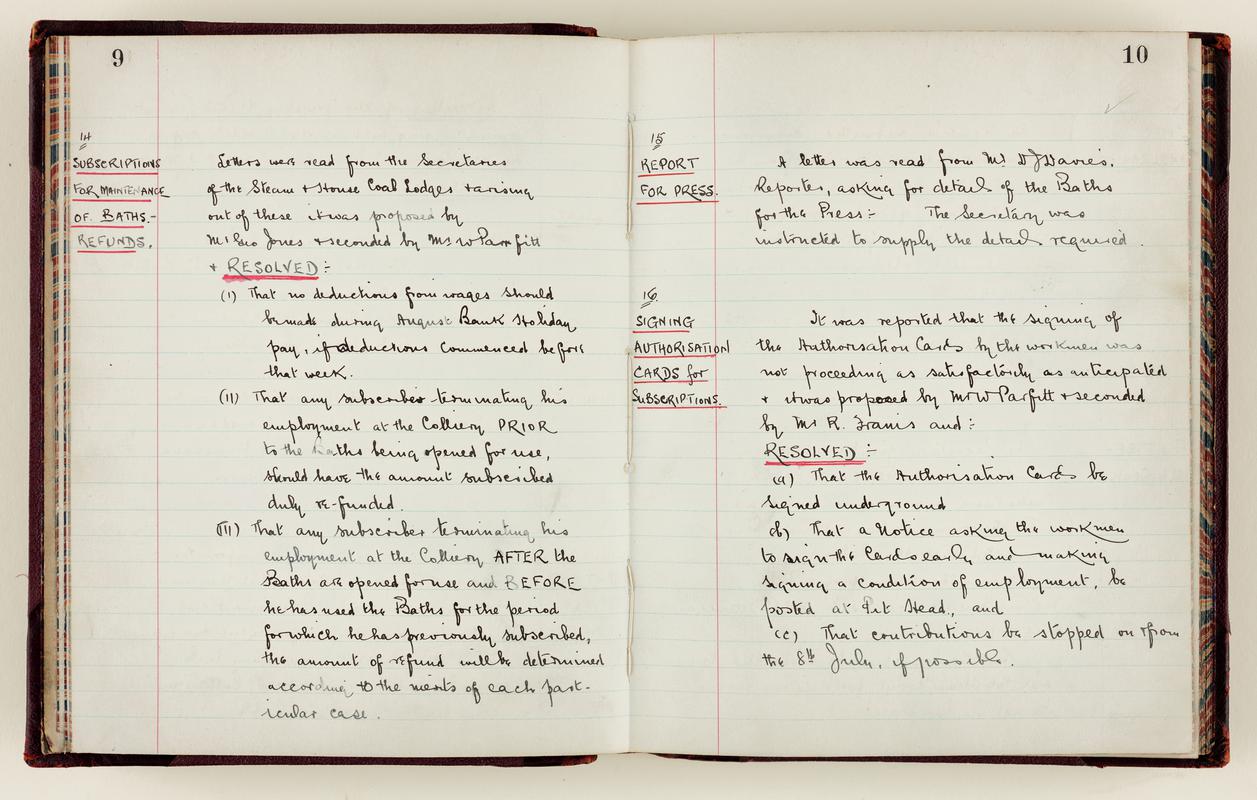 9
14
SUBSCRIPTIONS
FOR MAINTENANCE
OF BATHS.-
REFUNDS.
Letters were read from the Secretaries
of the Steam & House Coal Lodges & arising
out of these it was proposed by
Mr Geo Jones & seconded by Mr W Parfitt
& RESOLVED :-
(I) That no deductions from wages should
be made during August Bank Holiday
pay, if deductions commenced before
that week.
(II) That any subscriber terminating his
employment at the Colliery PRIOR
to the Baths being opened for use,
should have the amount subscribed
duly re-funded.
(III) That any subscriber terminating his
employment at the Colliery AFTER the
Baths are opened for use and BEFORE
he has used the Baths for the period
for which he has previously subscribed,
the amount of refund will be determined
according to the merits of each part-
icular case.
10
15
REPORT
FOR PRESS.
A letter was read from Mr D J Davies,
Reporter, asking for details of the Baths
for the Press :- The Secretary was
instructed to supply the details required.
16
SIGNING
AUTHORISATION
CARDS for
SUBSCRIPTIONS.
It was reported that the signing of
the Authorisation Cards by the workmen was
not proceeding as satisfactorily as anticipated
& it was proposed by Mr W Parfitt & seconded
by Mr R. Francis and :-
RESOLVED :-
(a) That the Authorisation Cards be
signed underground
(b) That a Notice asking the workmen
to sign the Cards early and making
signing a condition of employment, be
posted at Pit Head, and
(c) That contributions be stopped on & from
the 8th July, if possible.